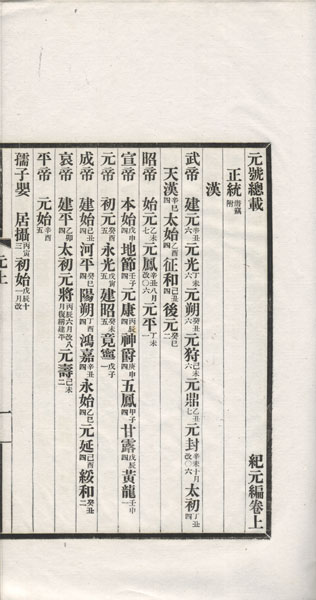 元號總載 紀元編卷上
正統 僭竊附
漢
武帝 建元辛丑六 元光丁未六 元朔癸丑六 元狩己未六 元鼎乙丑六 元封辛未十月改〇六 太初丁丑四
天漢辛巳四 太始乙酉四 征和己丑四 後元癸巳二
昭帝 始元乙未六 元鳳辛丑八月改〇六 元平丁未一
宣帝 本始戊申四 地節壬子四 元康丙辰四 神爵庚申四 五鳳甲子四 甘露戊辰四 黃龍壬申一
元帝 初元癸酉五 永光戊寅五 建昭癸未五 竟寧戊子一
成帝 建始己丑四 河平癸巳四 陽朔丁酉四 鴻嘉辛丑四 永始乙巳四 元延己酉四 綏和癸丑二
哀帝 建平乙卯四 太初元將丙辰六月改八月復稱建平 元壽己未二
平帝 元始辛酉五
孺子嬰 居攝丙寅三 初始戊辰十一月改
元上
一